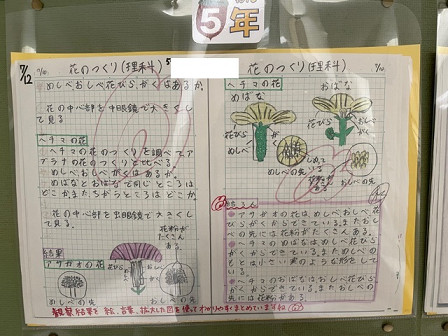 5年
7/12
花のつくり(理科)
めしべおしべ花びらがくはあるか。
花の中心部を虫眼鏡で大きくして見る。
ヘチマの花
ヘチマの花のつくりを調べてア
ブラナの花のつくりと比べる。
めしべおしべがくはあるか。
めばなとおばなで同じところは
どこかまたちがうところはどこか
花の中心部を虫眼鏡で大きくし
て見る。
結果
アサガオの花
花粉が
たくさん
ある。
花びら
がく
おしべ
めしべの先
おしべの先
花のつくり(理科)
ヘチマの花
めばな
おばな
花びら
めしべ
がく
花びら
おしべ
がく
めしべの先
花粉が
ある
おしべの先
アサガオの花は、めしべおしべ花
びらがくでできているまたおしべ
の先には花粉がたくさんある。
ヘチマのめばなはめしべ花びら
がくでできている。まためしべの
ヘチマのおばなはおしべ花びら
がくでできている。またおしべの
先には花粉がある。
観察結果を絵、言葉、拡大した図を使ってわかりやすくまとめていますね